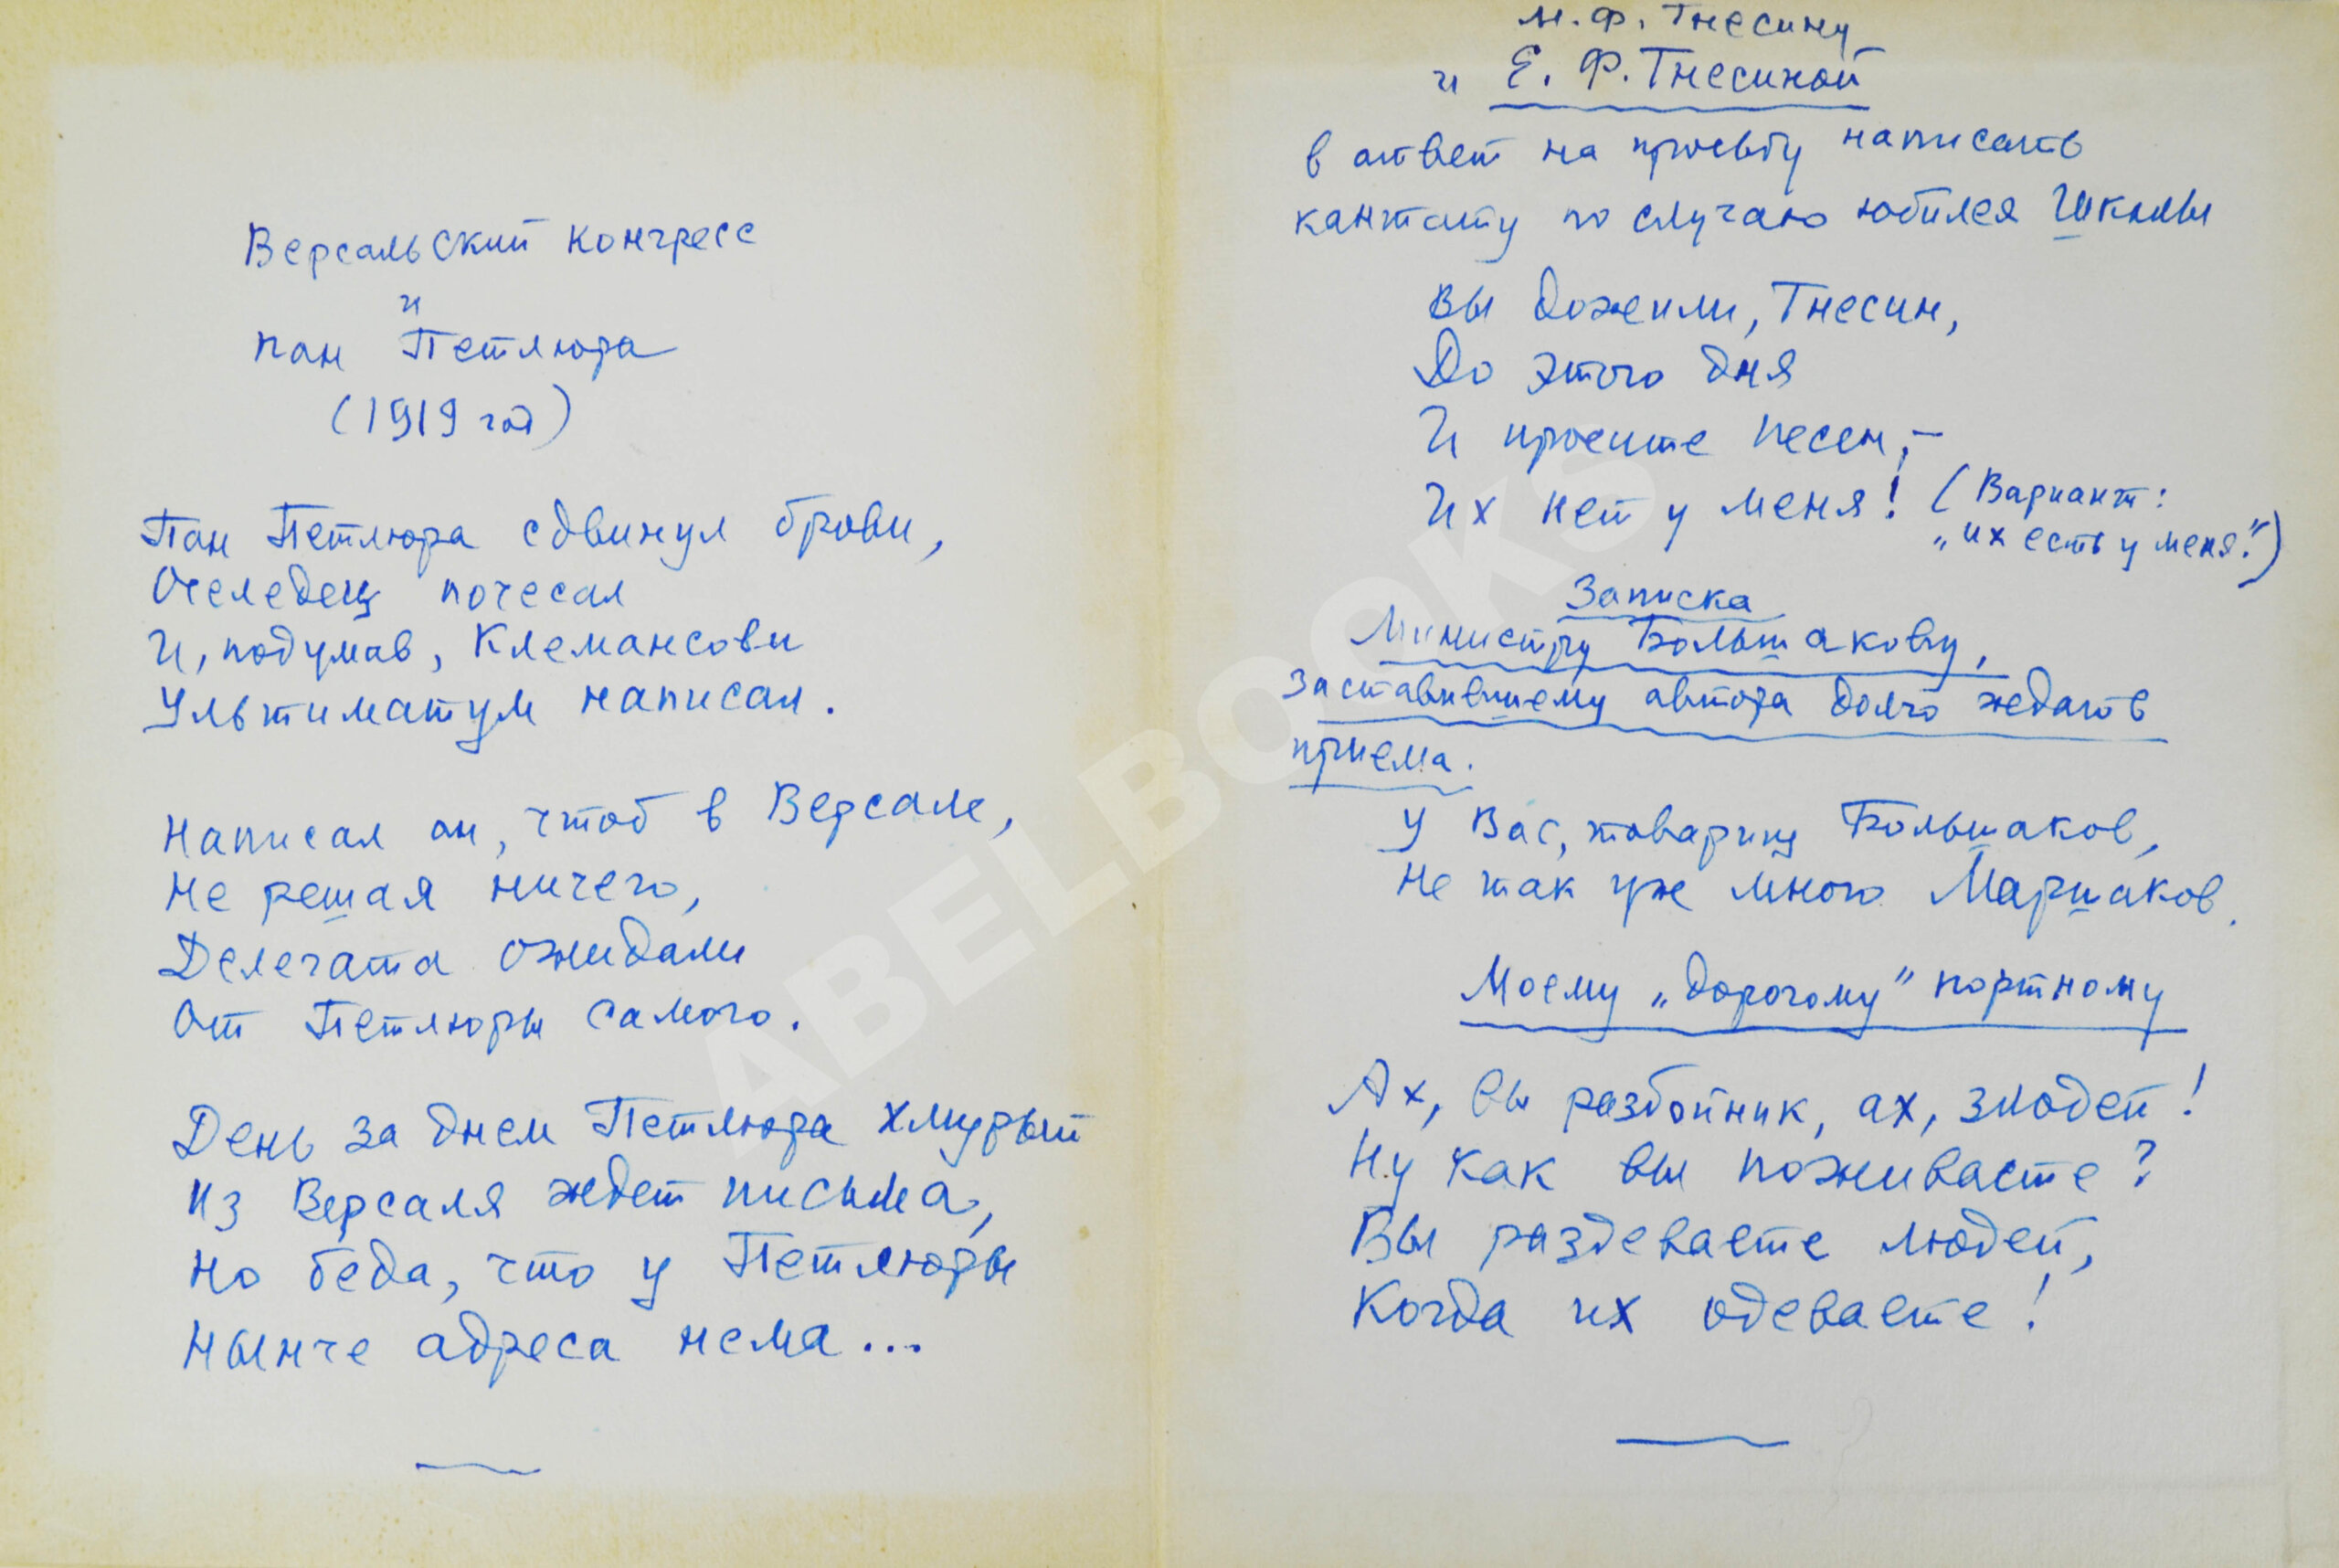 Версальский конгресс
и
пан Петлюра
(1919 год)
Пан Петлюра сдвинул брови,
Оселедец почесал
И, подумав, Клемансови
Ультиматум написал.
Написал он, чтоб в Версале,
Не решая ничего,
Делегата ожидали
От Петлюры самого.
День за днем Петлюра хмурый
Из Версаля ждет письма,
Но беда, что у Петлюры
Нынче адреса нема...
М. Ф. Гнесину
и Е. Ф. Гнесиной
в ответ на просьбу написать
кантату по случаю юбилея Школы
Вы дожили, Гнесин,
До этого дня
И просите песен, –
Их нет у меня! (Вариант:
„их есть у меня!")
Записка
Министру Большакову,
заставившему автора долго ждать
приема.
У Вас, товарищ Большаков,
Не так уж много Маршаков.
Моему „дорогому" портному
Ах, вы разбойник, ах, злодей!
Ну как вы поживаете?
Вы раздеваете людей,
Когда их одеваете!
ABELBOOKS